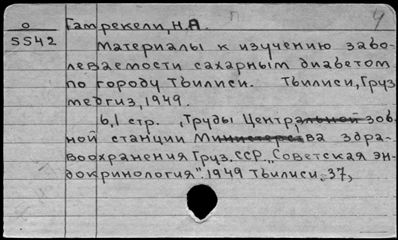 О
5542
Гамрекели, Н.А.
Материалы к изучению забо-
леваемости сахарным диабетом
по городу Тбилиси. Тбилиси, Груз
медгиз, 1949.
6,1 стр. „Труды Центральной зов-
ной станции Министерства здра-
воохранения Груз. ССР. „Советская эн-
докринология". 1949 Тбилиси. 37,